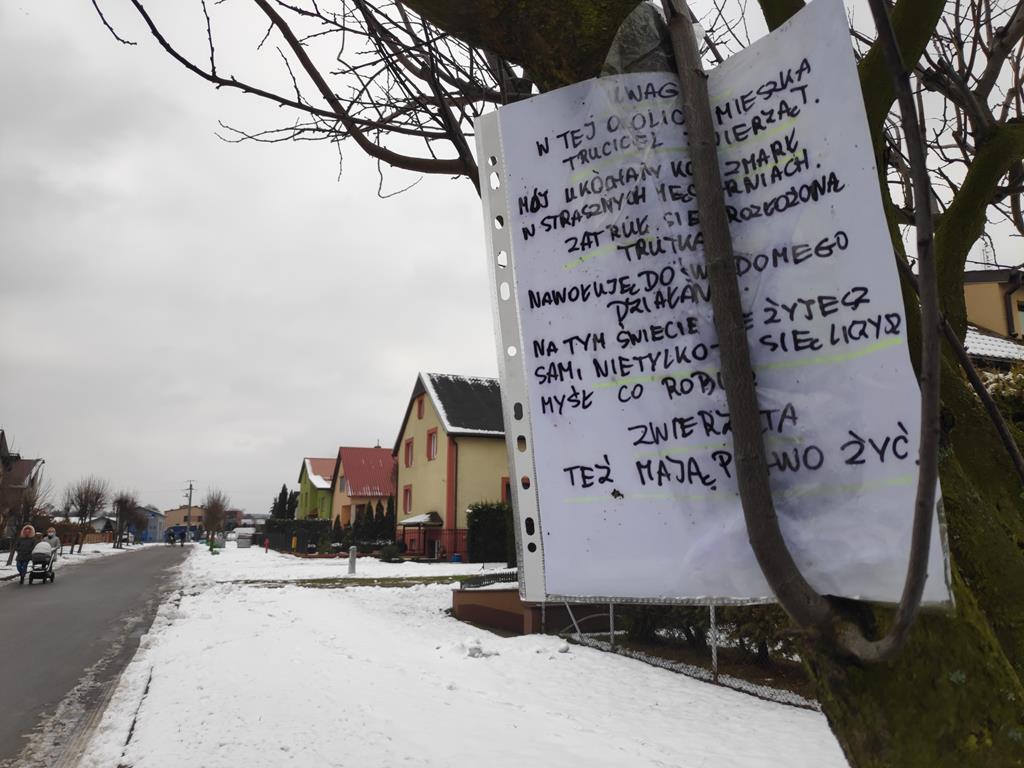 UWAGA
W TEJ OKOLICY MIESZKA
TRUCICIEL ZWIERZĄT.
MÓJ UKOCHANY KOT ZMARŁ
W STRASZNYCH MĘCZARNIACH.
ZATRUŁ SIĘ ROZŁOŻONĄ
TRUTKĄ
NAWOŁUJĘ DO ŚWIADOMEGO
DZIAŁANIA.
NA TYM ŚWIECIE NIE ŻYJESZ
SAM, NIE TYLKO SIĘ LICZYSZ
MYŚL CO ROBISZ
ZWIERZĘTA
TEŻ MAJĄ PRAWO ŻYĆ.